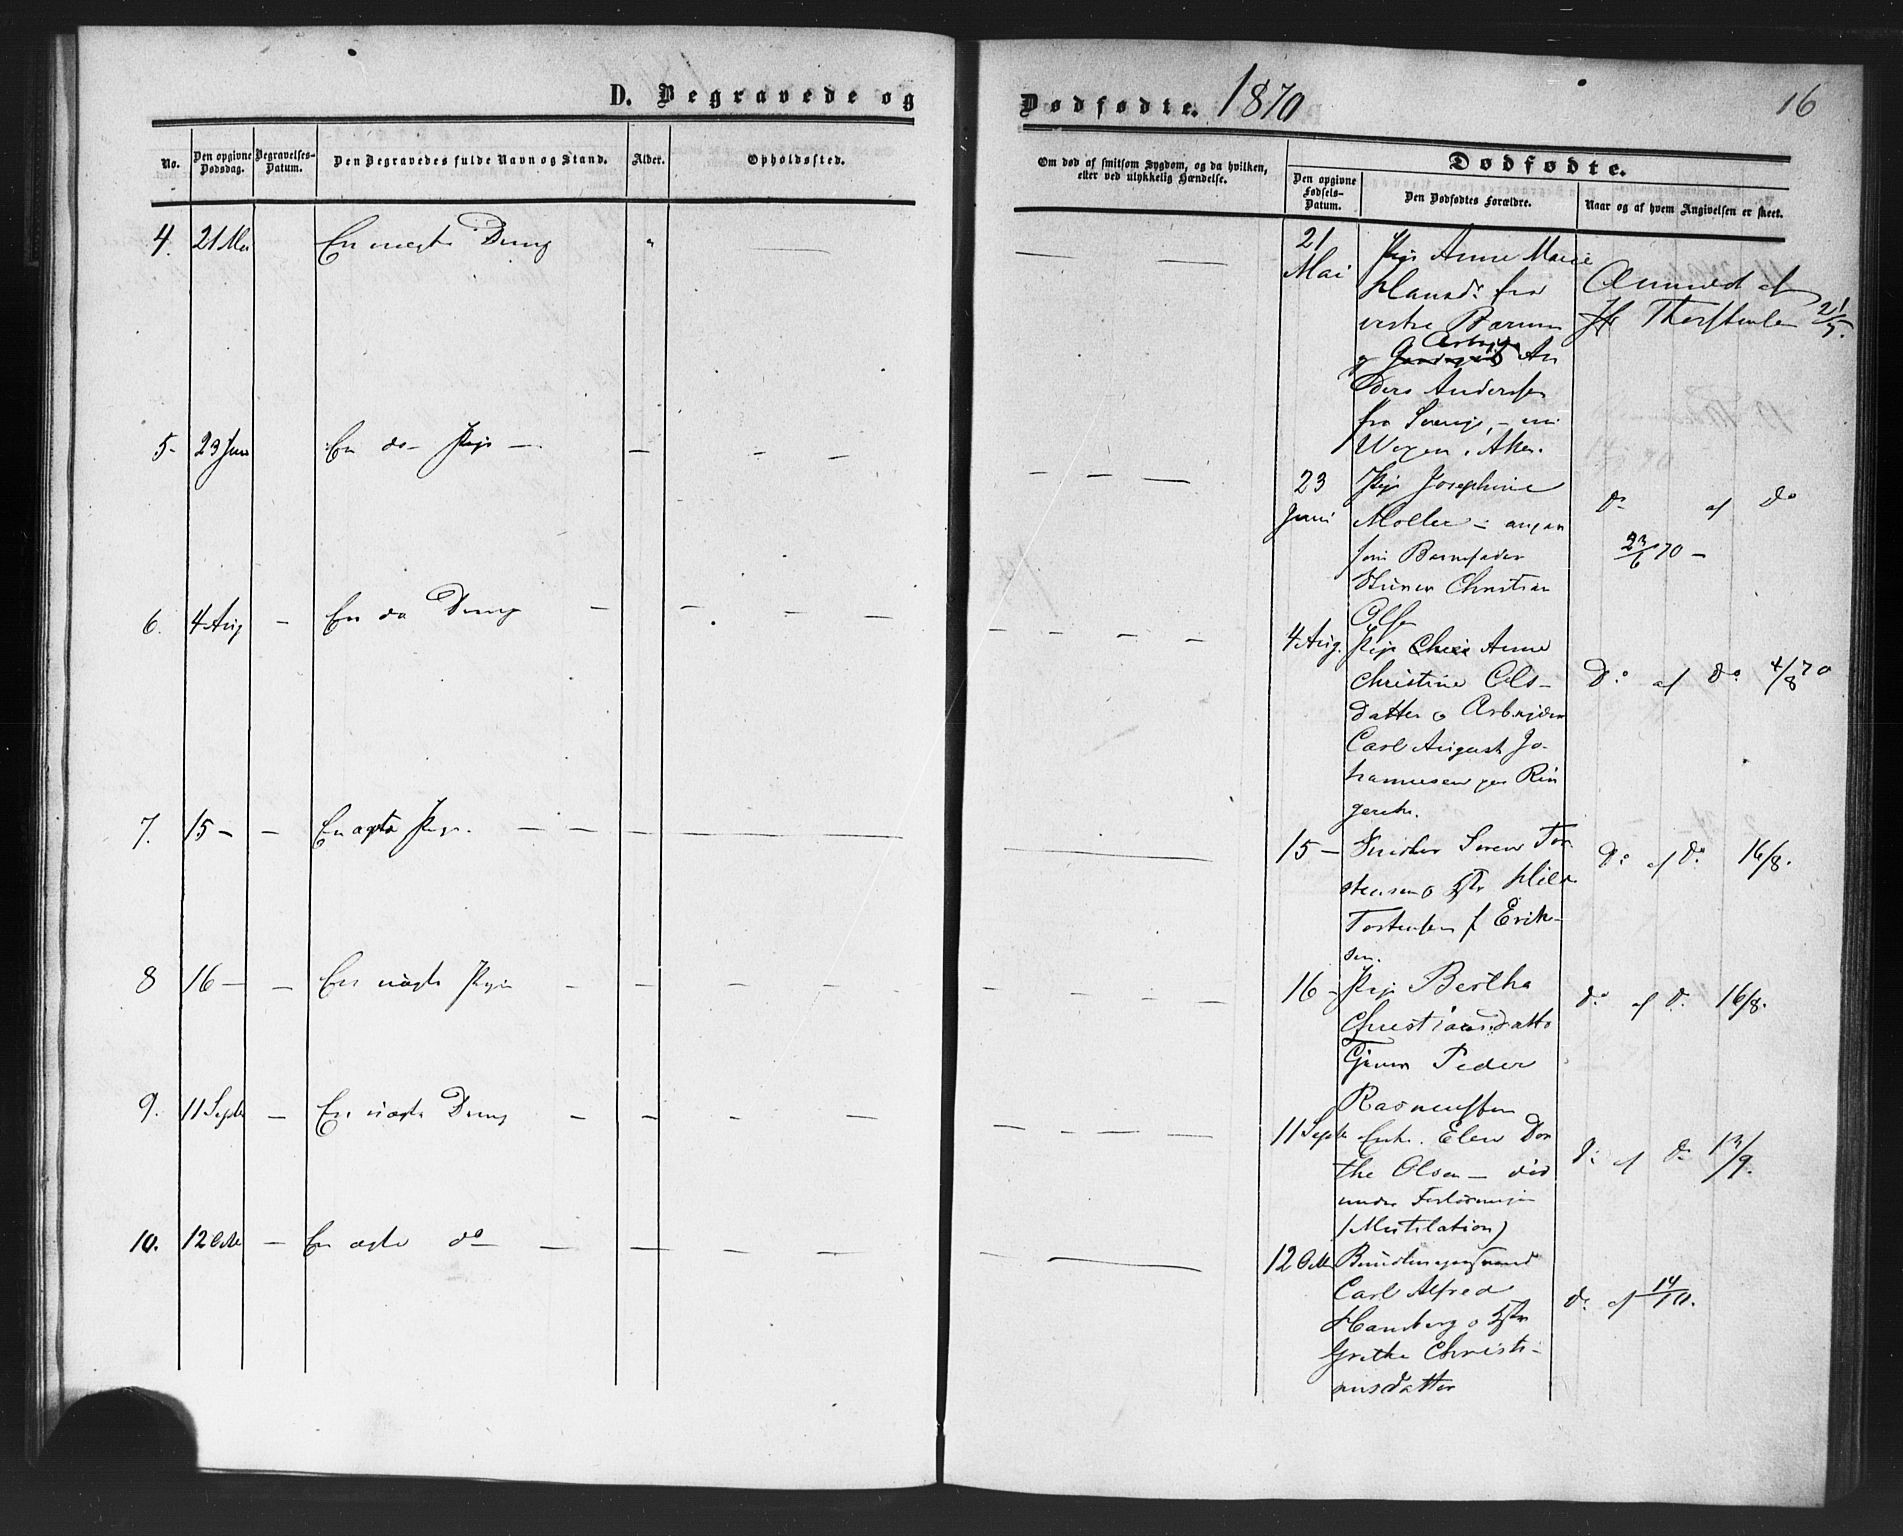 D. Begravede og
No.
Den opgivne Dødsdag.
Begravelses-Datum.
Den Begravedes fulde Navn og Stand.
Alder.
Opholdssted.
4. 21 Mai En uægte Dreng
5- 23 Juni En do- Pige -
6. 4 Aug - En do Dreng
7. 15 - - En ægte Pige.
8 16 - - En uægte Pige
9. 11 Septr - En uægte Dreng
10. 12 Octb - En ægte do
Dødfødte. 1870
16
Om død af smitsom Sygdom, og da hvilken,
eller ved ulykkelig Hændelse.
Dødfødte.
Den opgivne Fødsels-Datum.
Den Dødfødtes Forældre.
Naar og af hvem Angivelsen er skeet.
21 Mai
Pige Anne Marie
Hansdr fra
vestre Bærum
og Arbeider An
ders Andersen
fra Sverige,
Aker.
Anmeldt af
Jfr Thorstensen 21/5.
23 Juni
Pige Josephine
Moller - angav
som Barnefader
Christian
Olsen
Do af Do
23/6 70 -
4 Aug.
Pige Anne
Christine Ols-
datter o Arbeider
Carl August Jo-
hannesen paa Rin
gerike.
Do af Do 4/8 70
15 -
Snedker Søren Tor
stensen o Hstr
Torstensen f Erik-
sen.
Do af Do 16/8.
16 -
Pige Bertha
Christiansdatter
Peder
Rasmussen
Do af Do 16/8.
11 Septr
Enke. Elen Dor
the Olsen - død
under Forløsningen
(Mutilation)
Do af Do 13/9.
12 Octb
Carl Alfred
Hamberg o Hstr
Grethe Christi-
ansdatter
Do af 14/10.